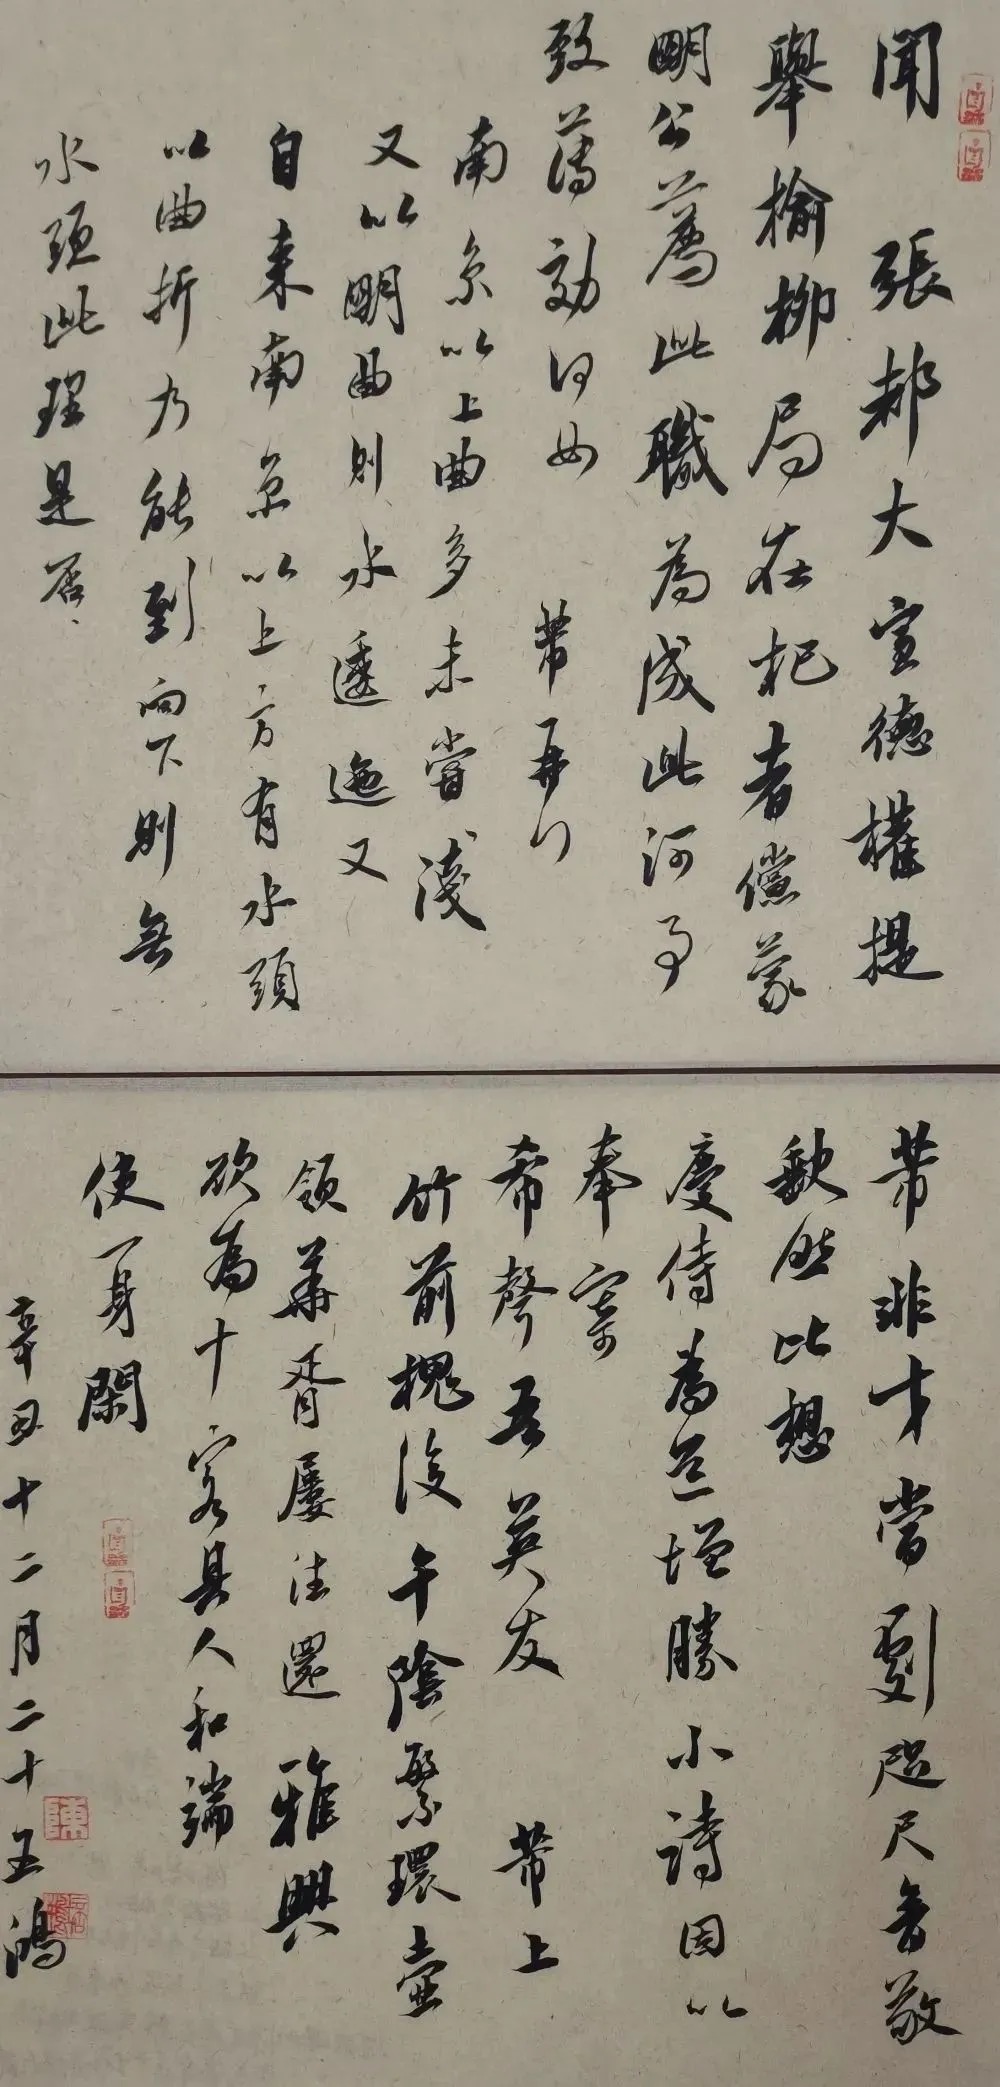 聞 張都大宣德權提
舉榆柳局在杞者儻蒙
明公薦此職為成此河事
致薄効何如 芾再行
南京以上曲多未嘗淺
又以明曲則水逶迤又
自來南京以上方有水頭
以曲折乃能到向下則無
水頭此理是否
芾非才當劇咫尺音敬
缺然比想
慶侍為道增勝小詩因以
奉寄
希聲吾英友 芾上
竹前槐後午陰繁環壺
領華胥屢往還雅興
欲為十客具人和端
使一身閑
辛丑十二月二十五鴻
陳